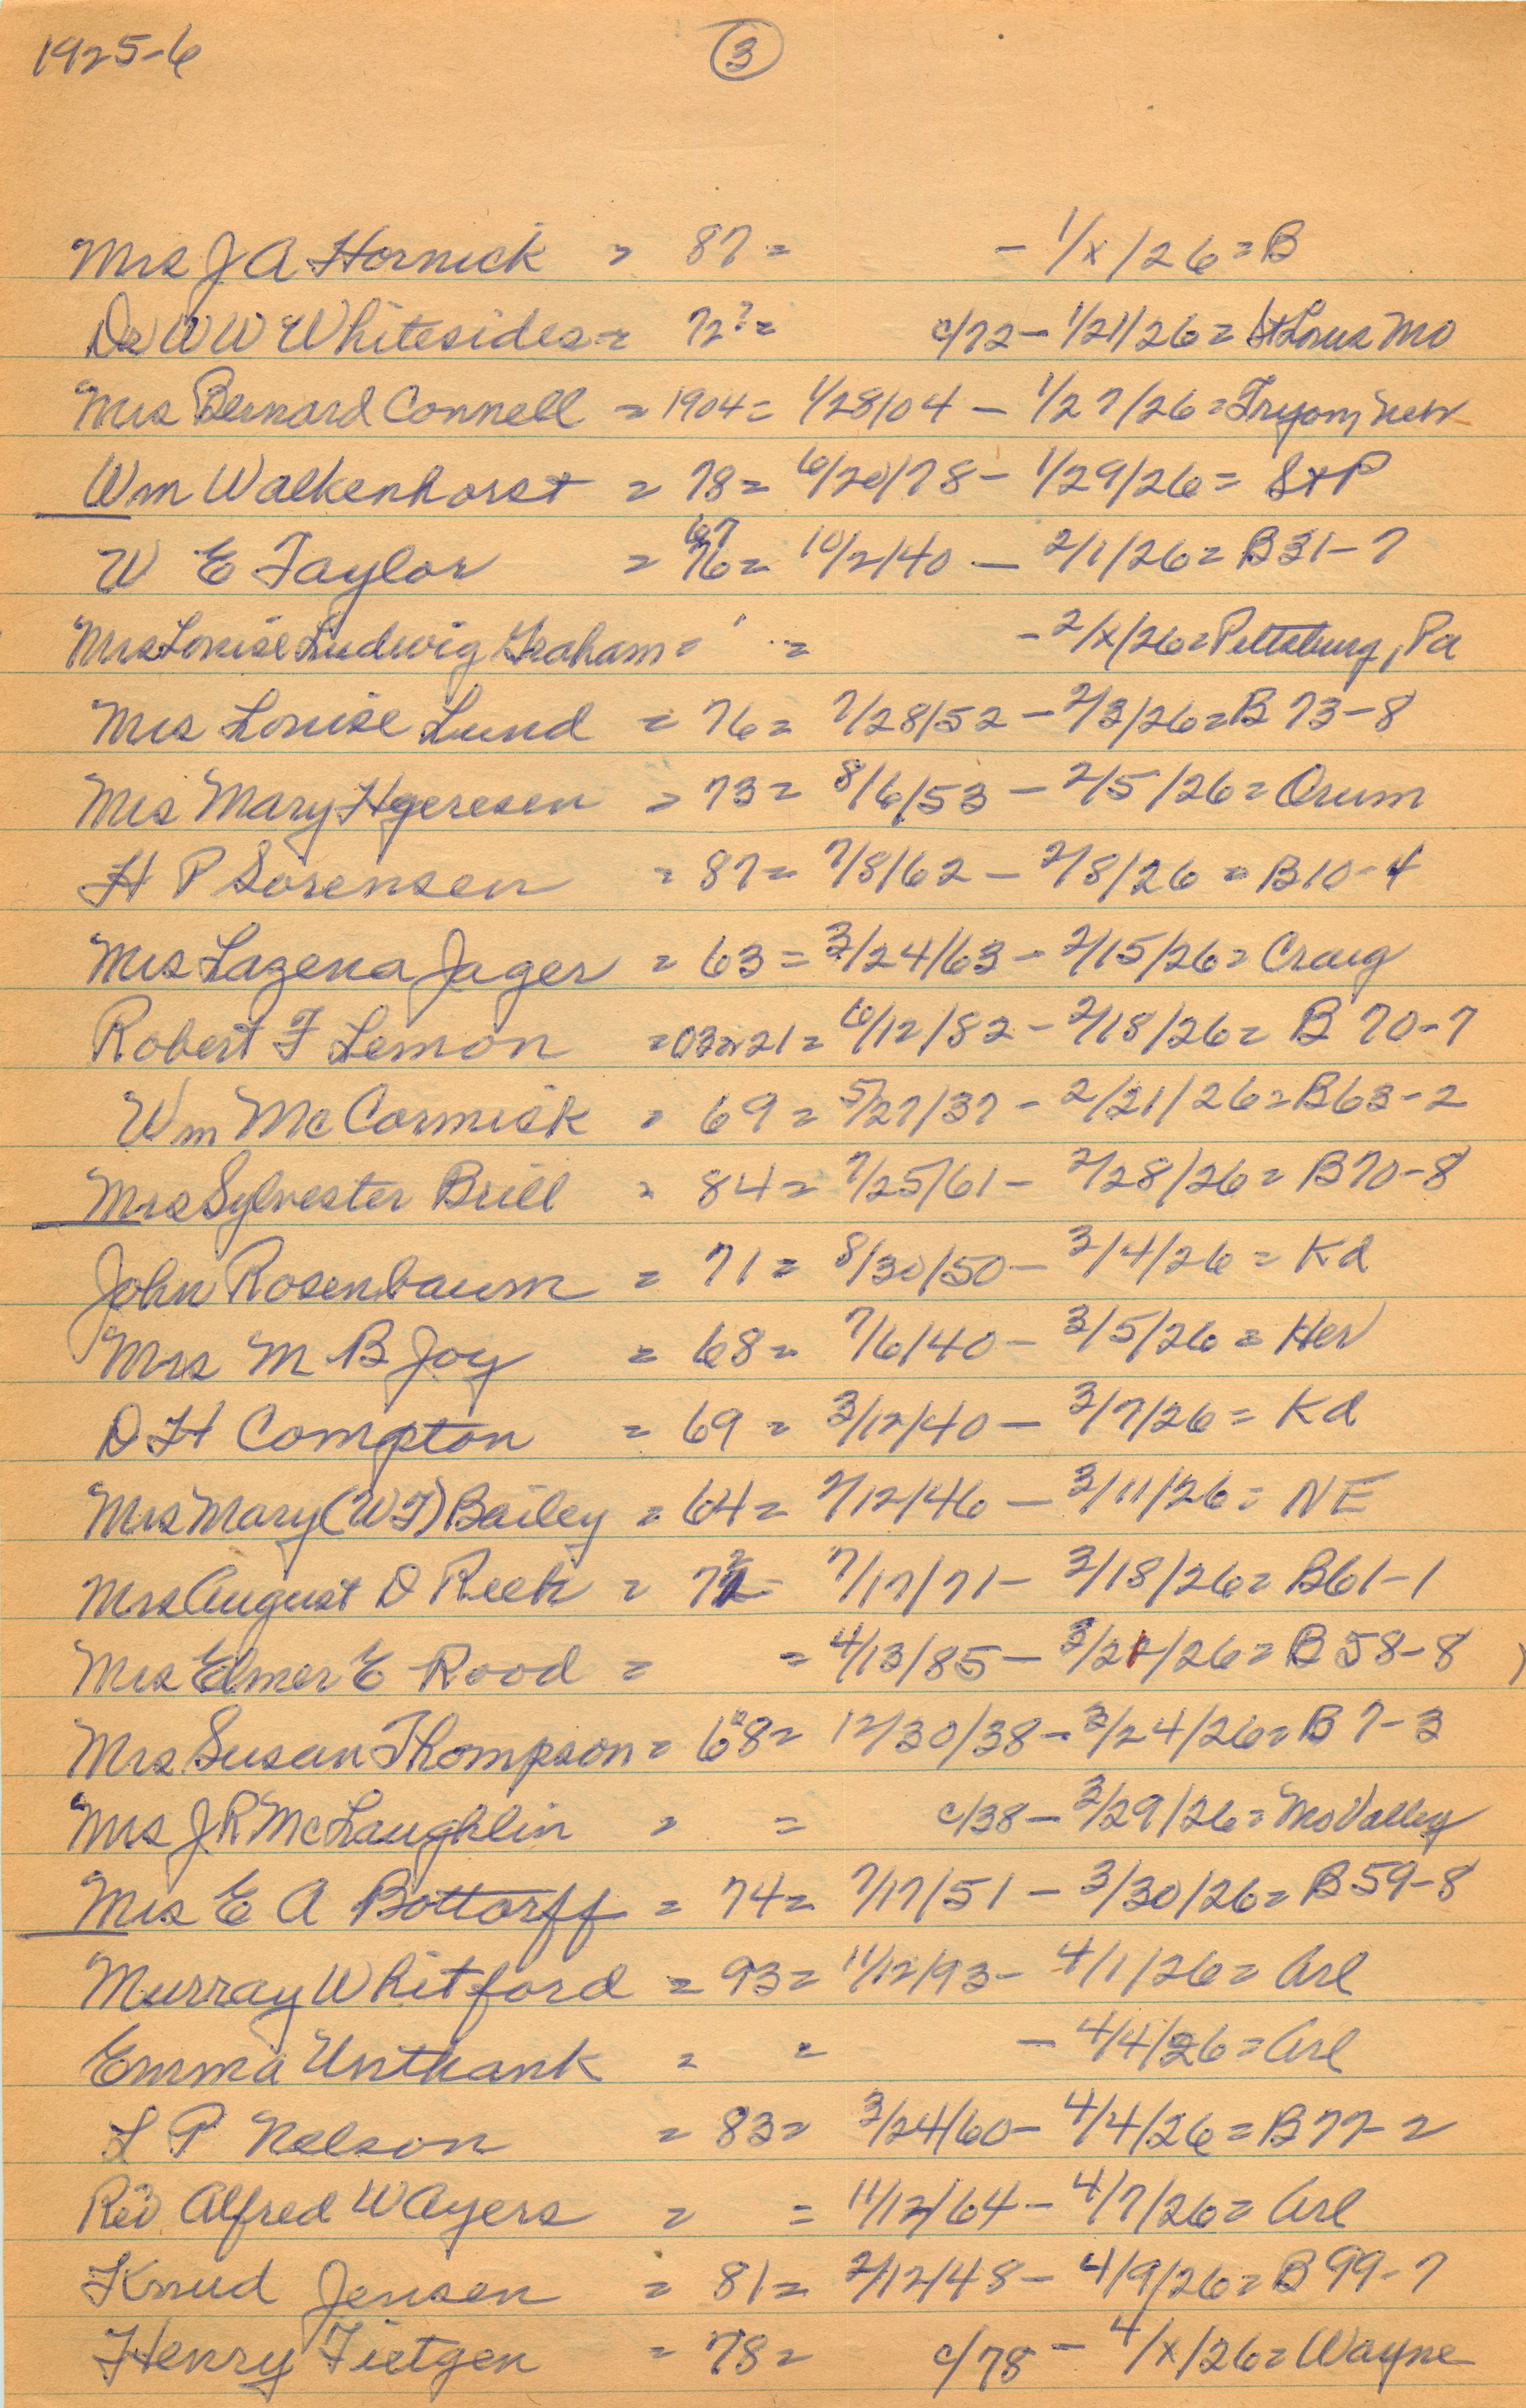 1925-6
3
Mrs J A Hornick = 87 = - 1/x/26 = B
Dr W W Whitesides = 72? = c/72 - 1/21/26 = St Louis Mo
Mrs Bernard Connell = 1904 = 1/28/04 - 1/27/26 = Tryon, Neb
Wm Walkenhorst = 78 = 6/20/78 - 1/29/26 = St P
67
W E Taylor = 76 = 10/2/40 - 2/1/26 = B 31-7
Mrs Louise Ludwig Graham = = - 2/x/26 = Pittsburg, Pa
Mrs Louise Lund = 76 = 7/28/52 - 2/3/26 = B 73-8
Mrs Mary Hgeresen = 73 = 8/6/53 - 2/5/26 = Orum
H P Sorensen = 87 = 7/8/62 - 2/8/26 = B 10-4
Mrs Lazena Jager = 63 = 3/24/63 - 2/15/26 = Craig
Robert F Lemon = 03 or 21 = 6/12/82 - 2/18/26 = B 70-7
Wm McCormick = 69 = 5/27/37 - 2/21/26 = B 63-2
Mrs Sylvester Brill = 84 = 7/25/61 - 2/28/26 = B 70-8
John Rosenbaum = 71 = 8/30/50 - 3/4/26 = Kd
Mrs M B Joy = 68 = 7/6/40 - 3/5/26 = Her
D H Compton = 69 = 3/12/40 - 3/7/26 = Kd
Mrs Mary (W F) Bailey = 64 = 2/12/46 - 3/11/26 = NE
Mrs August D Reeh = 72 7/17/71 - 3/18/26 = B 61-1
Mrs Elmer E Rood = = 4/13/85 - 3/21/26 = B 58-8
Mrs Susan Thompson = 68 = 12/30/38 - 3/24/26 = B 7-3
Mrs J R McLaughlin = = c/38 - 3/29/26 = Mo Valley
Mrs E A Bottorff = 74 = 7/17/51 - 3/30/26 = B 59-8
Murray Whitford = 93 = 11/12/93 - 4/1/26 = Arl
Emma Unthank = = - 4/4/26 = Arl
L P Nelson = 83 = 3/24/60 - 4/4/26 = B 77-2
Rev Alfred W Ayers = = 11/12/64 - 4/7/26 = Arl
Knud Jensen = 81 = 2/12/48 - 4/9/26 = B 99-7
Henry Tietgen = 78 = c/78 - 4/x/26 = Wayne